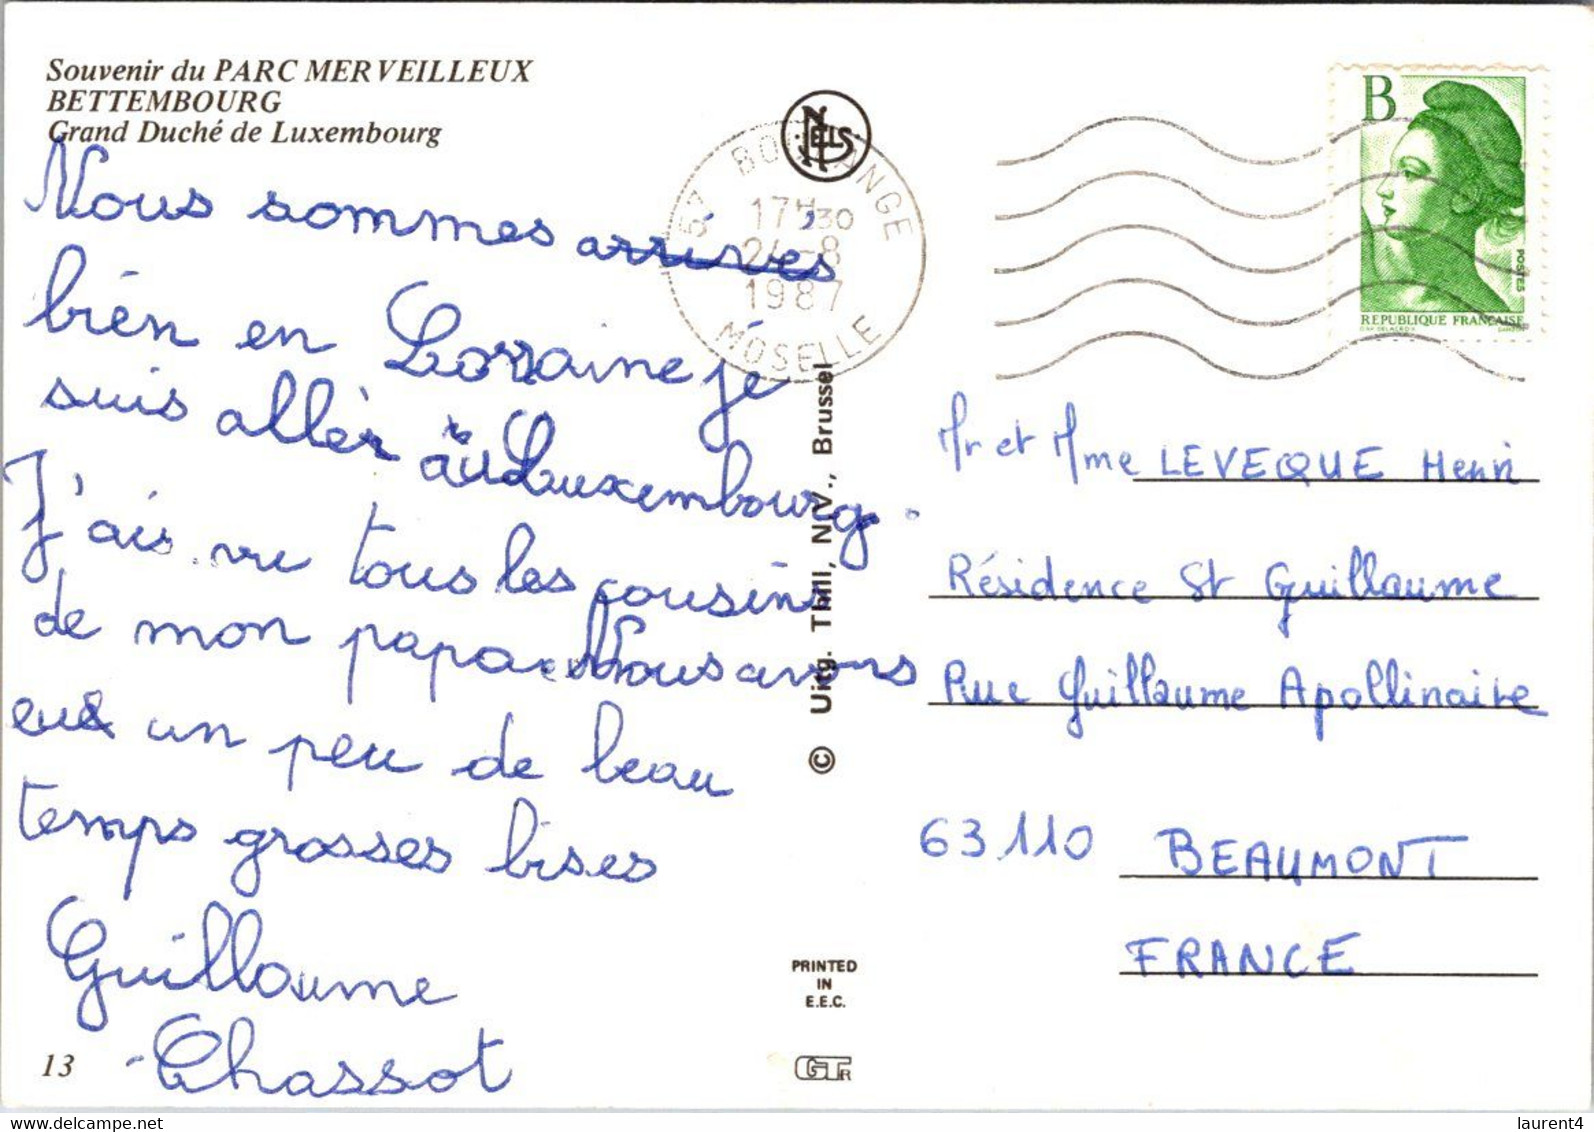 Souvenir du PARC MERVEILLEUX
BETTEMBOURG
Grand Duché de Luxembourg
Nous sommes arrivés
bien en Lorraine je
suis allèr au Luxembourg.
J'ais vu tous les cousins
de mon papa. Nous avons
eu un peu de beau
temps grosses bises
Guillaume
Chassot
13
NELS
57 BOULANGE
17H30
24-8
1987
MOSELLE
© Uitg. Thill, N.V., Brussel
PRINTED
IN
E.E.C.
GTR
B
POSTES
REPUBLIQUE FRANÇAISE
Mr et Mme LEVEQUE Henri
Résidence St Guillaume
Rue Guillaume Apollinaire
63110 BEAUMONT
FRANCE
Delcampe.net
laurent4